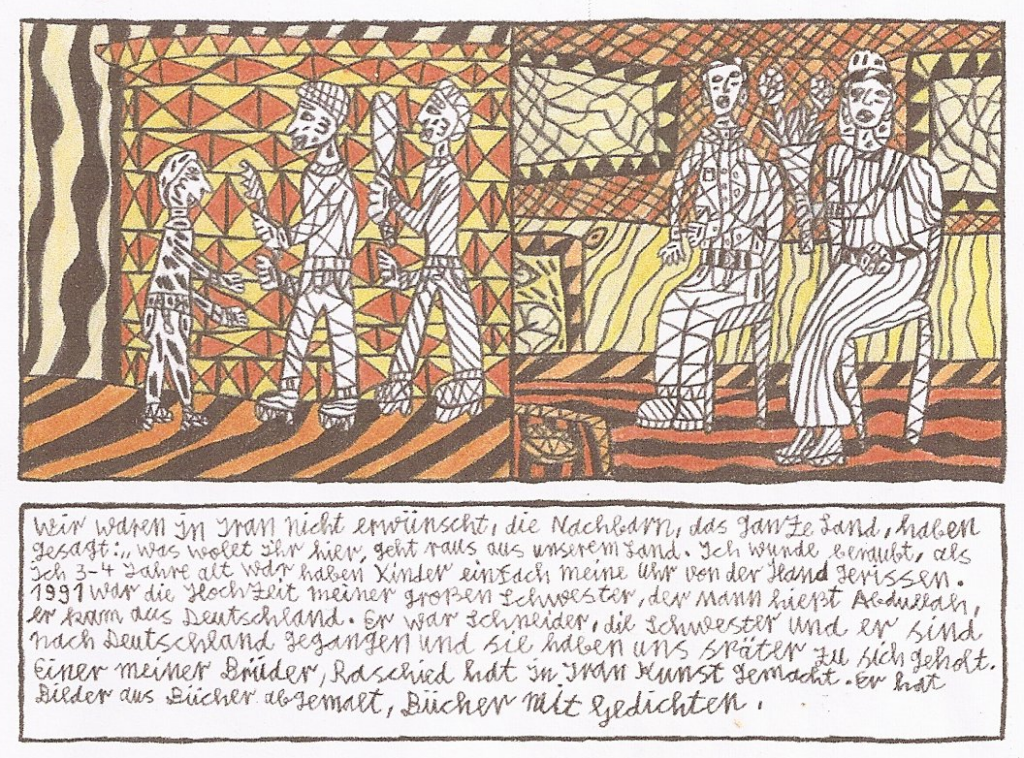 Wir waren in Iran nicht erwünscht, die Nachbarn, das ganze Land, haben
gesagt: „was wollet Ihr hier, geht raus aus unserem Land. Ich wurde beraubt, als
Ich 3-4 Jahre alt war haben Kinder einfach meine Uhr von der Hand gerissen.
1991 war die Hochzeit meiner großen Schwester, der Mann hießt Abdullah,
er kam aus Deutschland. Er war Schneider, die Schwester und er sind
nach Deutschland gegangen und sie haben uns später zu sich geholt.
Einer meiner Brüder, Raschied hat in Iran Kunst gemacht. Er hat
Bilder aus Bücher abgemalt, Bücher mit Gedichten.